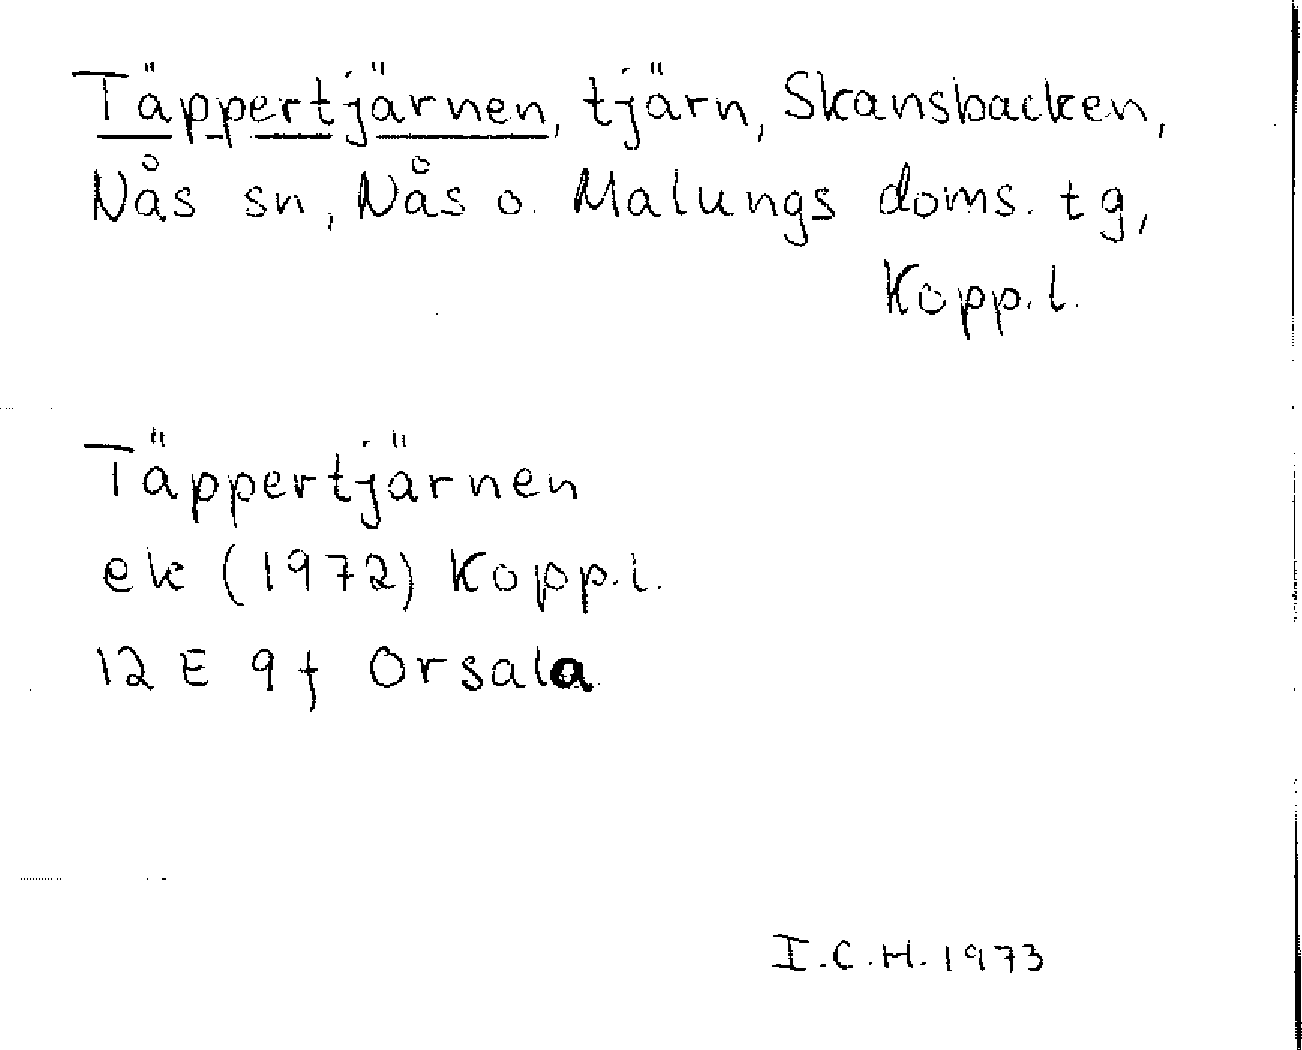 Täppertjärnen, tjärn, Skansbacken,
Nås sn, Nås o. Malungs doms. tg,
Kopp. l.
Täppertjärnen
ek (1972) Kopp. l.
12 E 9 f Orsala
I.C.H. 1973